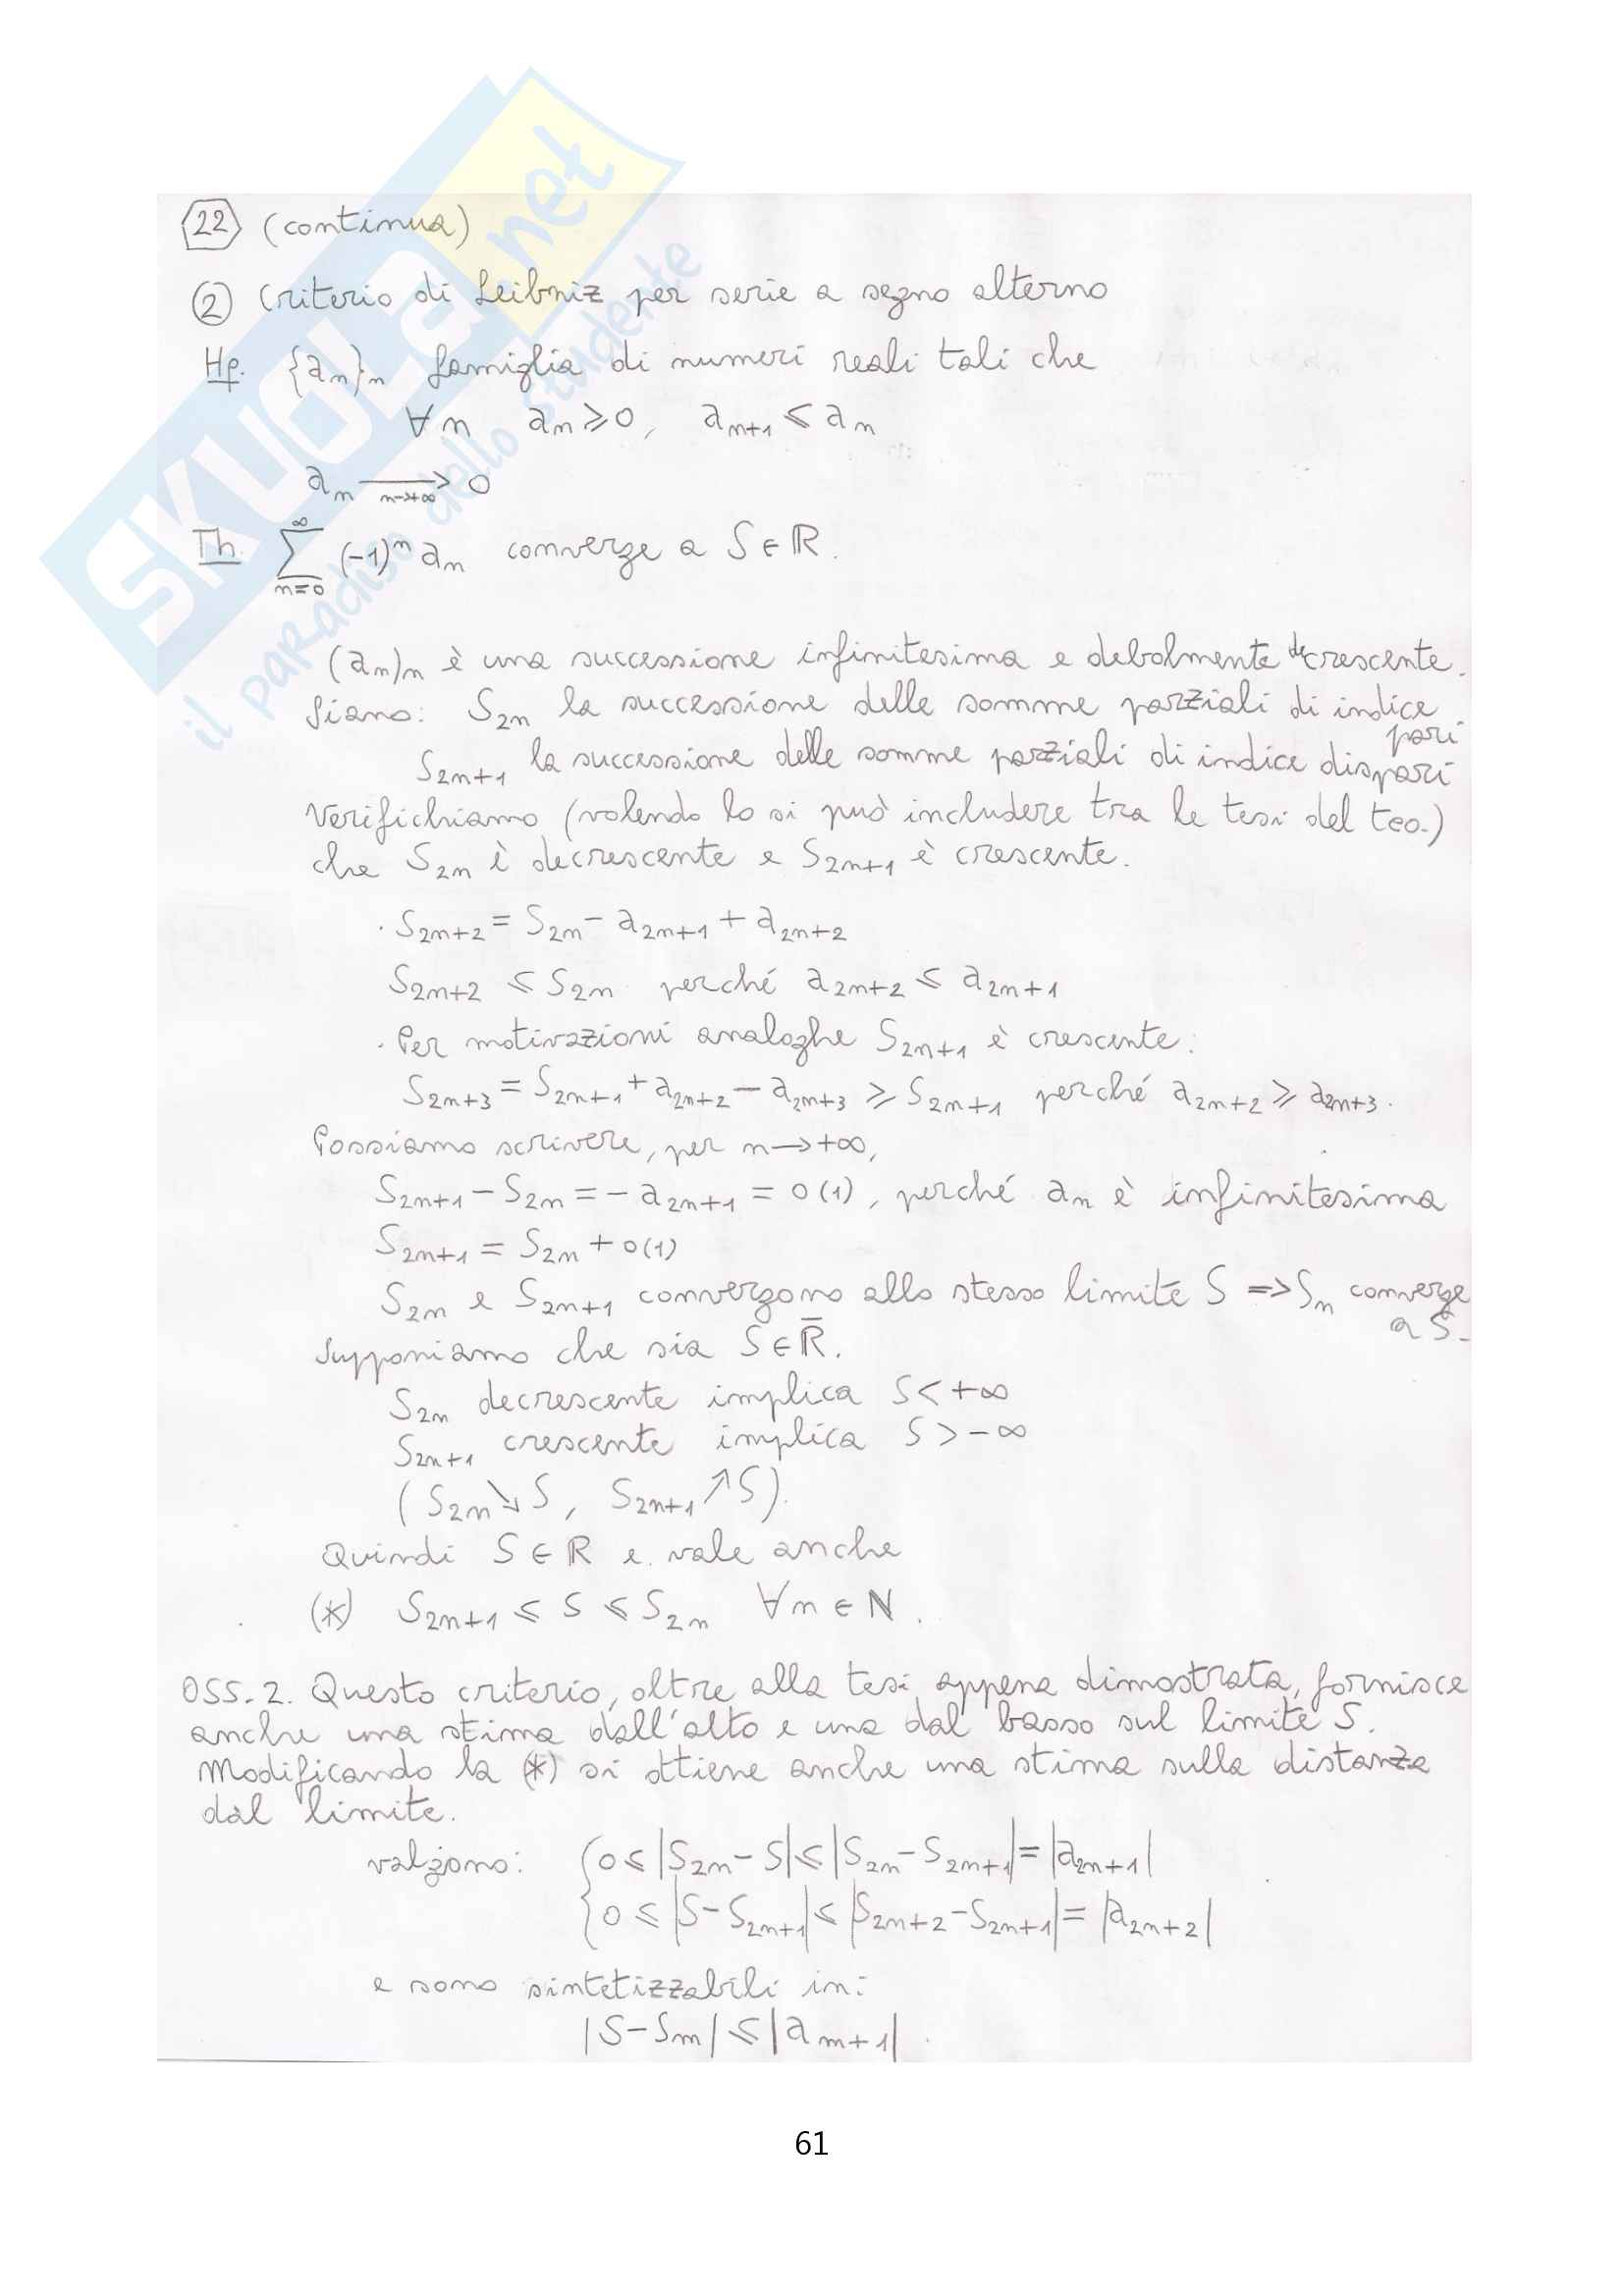 SKUOLA.net
il paradiso dello studente
22 (continua)
② Criterio di Leibniz per serie a segno alterno
Hp. {aₙ}ₙ famiglia di numeri reali tali che
∀n aₙ ≥ 0, aₙ₊₁ ≤ aₙ
aₙ →_(n→+∞) 0
Th. ∑_(n=0)^∞ (-1)ⁿ aₙ converge a S ∈ ℝ.
(aₙ)ₙ è una successione infinitesima e debolmente decrescente.
Siano: S₂ₙ la successione delle somme parziali di indice pari
S₂ₙ₊₁ la successione delle somme parziali di indice dispari
Verifichiamo (volendo lo si può includere tra le tesi del teo.)
che S₂ₙ è decrescente e S₂ₙ₊₁ è crescente.
· S₂ₙ₊₂ = S₂ₙ - a₂ₙ₊₁ + a₂ₙ₊₂
S₂ₙ₊₂ ≤ S₂ₙ perché a₂ₙ₊₂ ≤ a₂ₙ₊₁
· Per motivazioni analoghe S₂ₙ₊₁ è crescente:
S₂ₙ₊₃ = S₂ₙ₊₁ + a₂ₙ₊₂ - a₂ₙ₊₃ ≥ S₂ₙ₊₁ perché a₂ₙ₊₂ ≥ a₂ₙ₊₃.
Possiamo scrivere, per n→+∞,
S₂ₙ₊₁ - S₂ₙ = - a₂ₙ₊₁ = o(1), perché aₙ è infinitesima
S₂ₙ₊₁ = S₂ₙ + o(1)
S₂ₙ e S₂ₙ₊₁ convergono allo stesso limite S => Sₙ converge
a S.
Supponiamo che sia S ∈ ℝ̅.
S₂ₙ decrescente implica S < +∞
S₂ₙ₊₁ crescente implica S > -∞
(S₂ₙ ↘ S, S₂ₙ₊₁ ↗ S).
Quindi S ∈ ℝ e vale anche
(*) S₂ₙ₊₁ ≤ S ≤ S₂ₙ ∀n ∈ ℕ.
OSS. 2. Questo criterio, oltre alla tesi appena dimostrata, fornisce
anche una stima dall'alto e una dal basso sul limite S.
Modificando la (*) si ottiene anche una stima sulla distanza
dal limite.
valgono: { 0 ≤ |S₂ₙ - S| ≤ |S₂ₙ - S₂ₙ₊₁| = |a₂ₙ₊₁|
{ 0 ≤ |S - S₂ₙ₊₁| ≤ |S₂ₙ₊₂ - S₂ₙ₊₁| = |a₂ₙ₊₂|
e sono sintetizzabili in:
|S - Sₘ| ≤ |aₘ₊₁|.
61